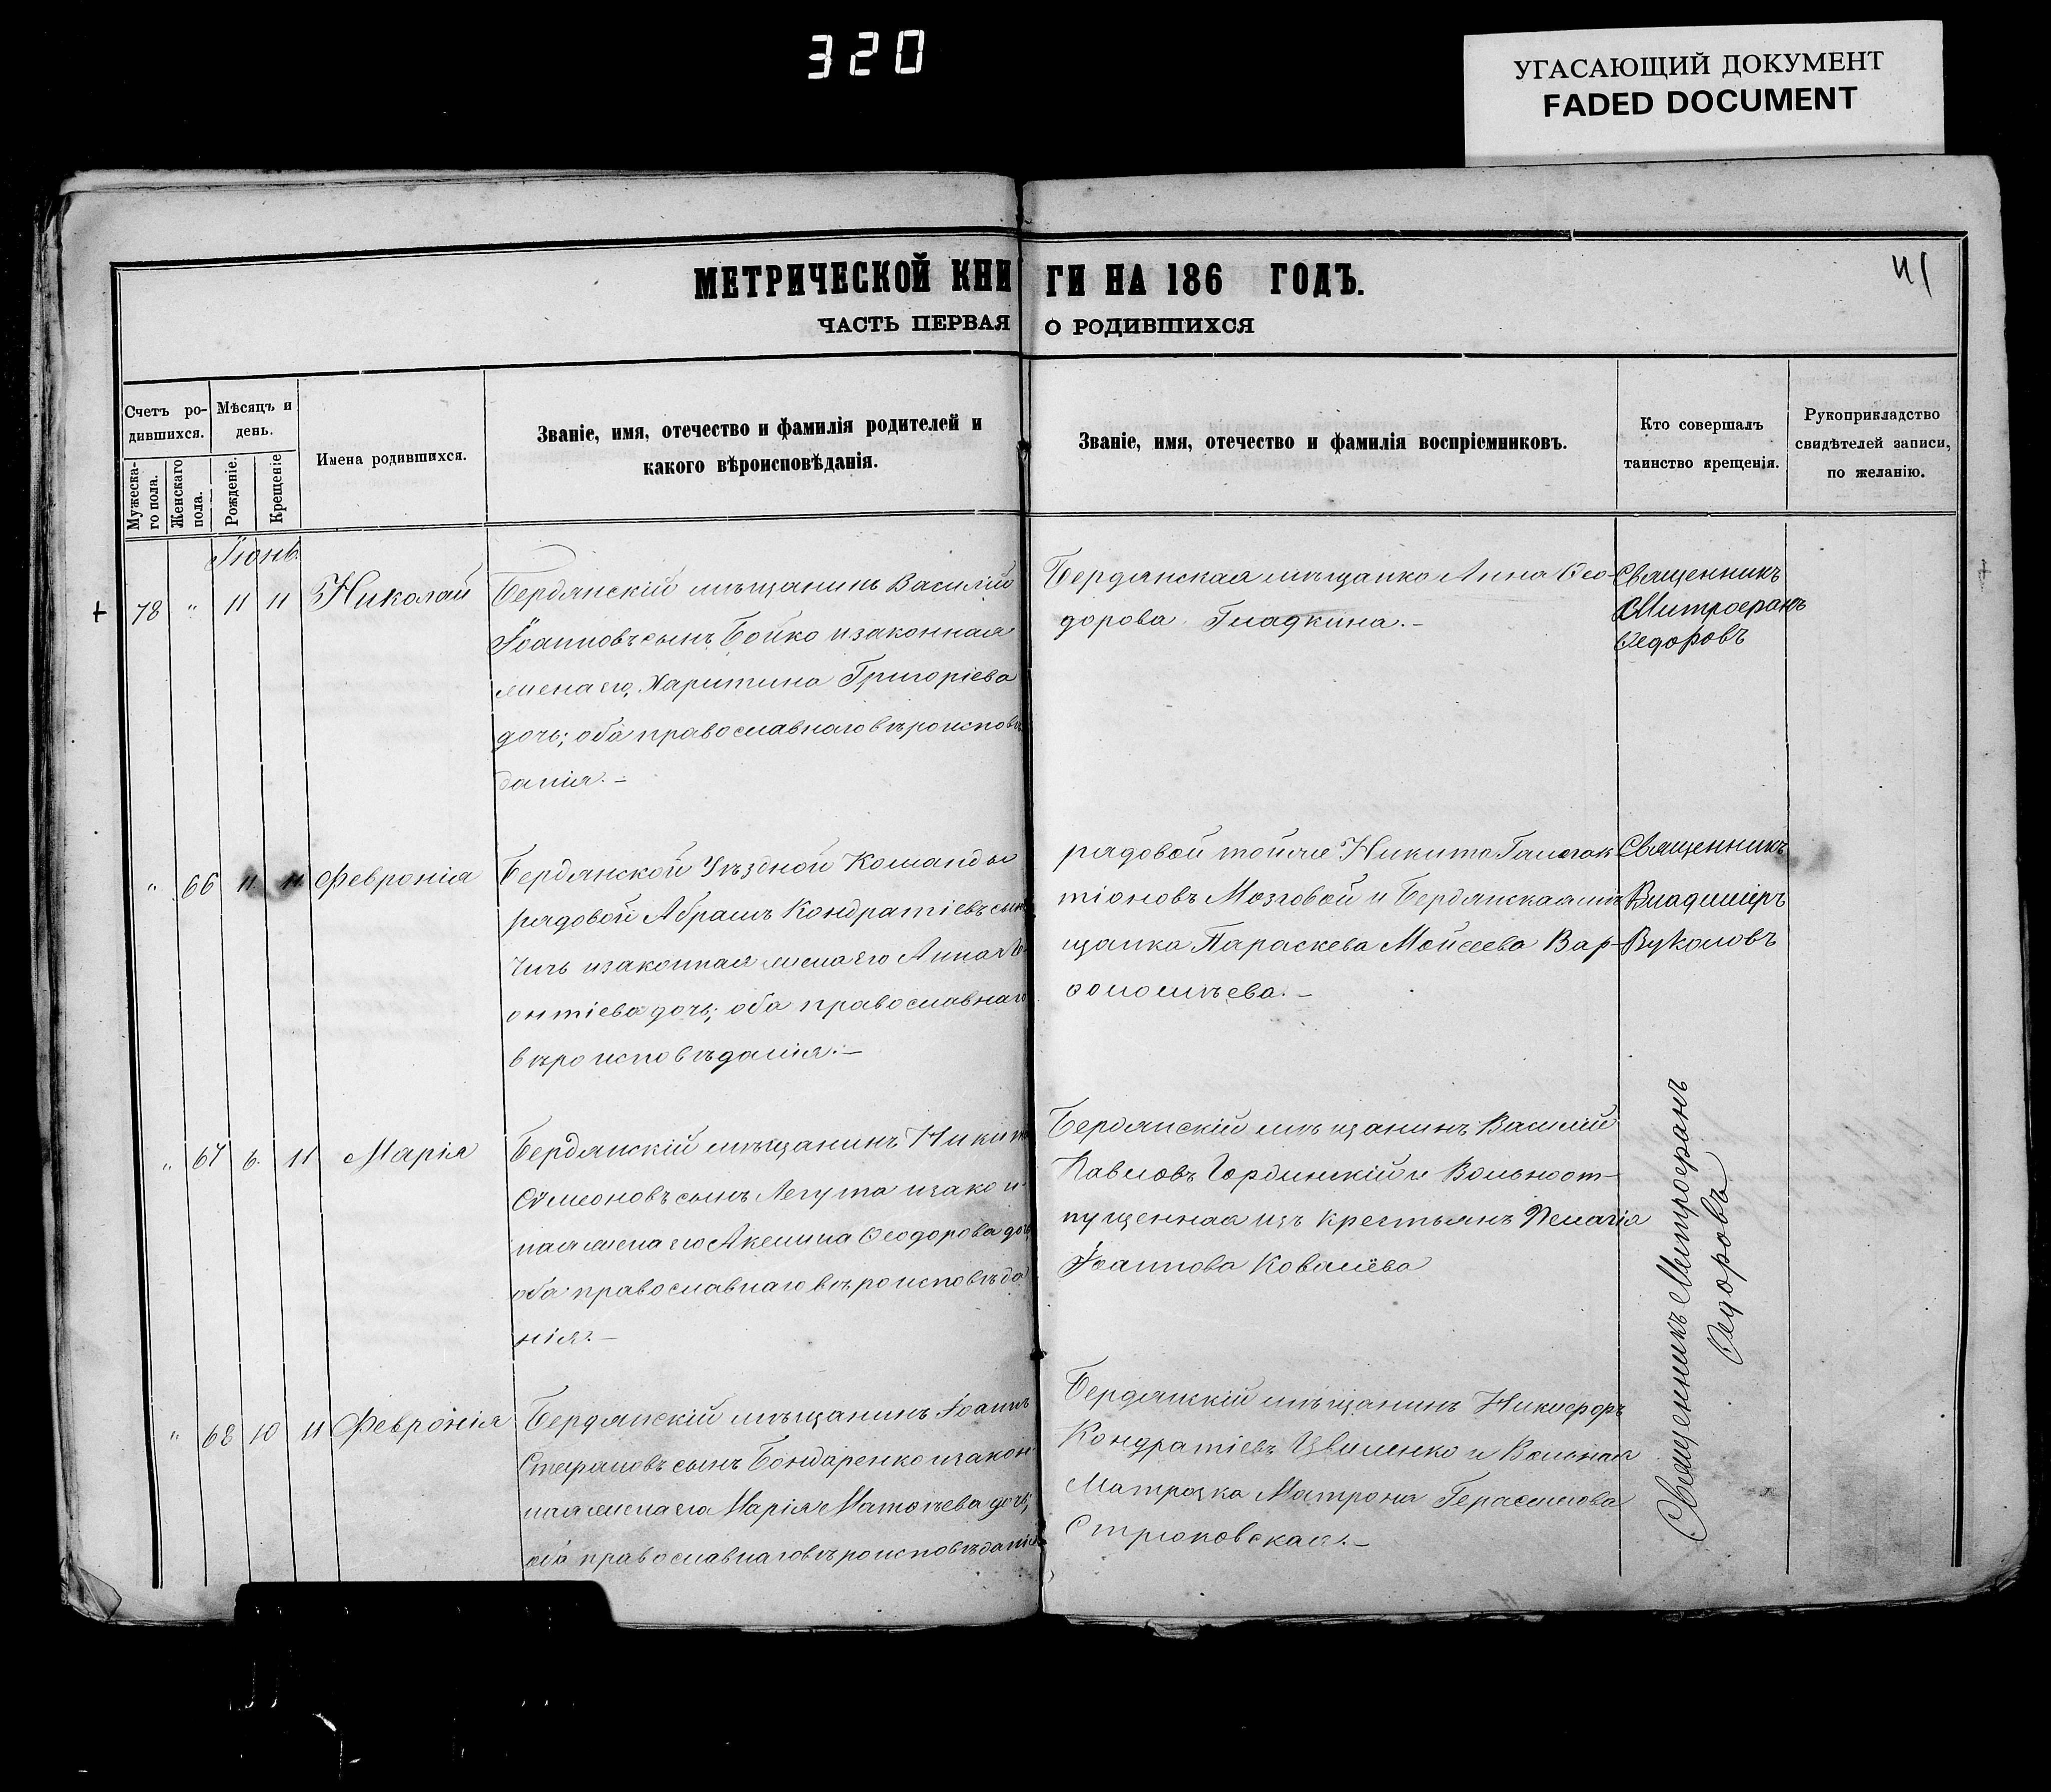 320
УГАСАЮЩИЙ ДОКУМЕНТ
FADED DOCUMENT
МЕТРИЧЕСКОЙ КНИГИ НА 186 ГОДЪ.
41
ЧАСТЬ ПЕРВАЯ О РОДИВШИХСЯ
Счетъ ро-
дившихся.
Мужеска-
го пола.
Женскаго
пола.
Мѣсяцъ и
день.
Рожденіе.
Крещеніе
Имена родившихся.
Званіе, имя, отечество и фамилія родителей и
какого вѣроисповѣданія.
Званіе, имя, отечество и фамилія воспріемниковъ.
Кто совершалъ
таинство крещенія.
Рукоприкладство
свидѣтелей записи,
по желанію.
Іюнь.
78 " 11 11 Николай
Бердянскій мѣщанинъ Василій
Іоанновъ сынъ Бойко и законная
жена его, Харитина Григоріева
дочь; оба православнаго вѣроисповѣ
данія. –
Бердянская мѣщанка Анна Ѳео-
дорова Гладкина. –
Священникъ
Митрофанъ
Ѳедоровъ
" 66 11. 11 Февронія
Бердянской Уѣздной Команды
рядовой Абрамъ Кондратіевъ сынъ
и законная жена его Анна
онтіева дочь; оба православнаго
вѣроисповѣданія. –
рядовой тойже Никита Галак
тіоновъ Мозговой и Бердянская мѣ
щанка Параскева Моисеева Вар-
ѳоломѣева. –
Священникъ
Владиміръ
Вуколовъ
" 67 6. 11 Марія
Бердянскій мѣщанинъ Никита
Сѵмеоновъ сынъ Легута и закон
ная жена его Акелина Ѳеодорова дочь
оба православнаго вѣроисповѣда
нія. –
Бердянскій мѣщанинъ Василій
Павловъ Гординскій и Вольноот-
пущенная изъ крестьянъ Пелагія
Іоаннова Ковалёва
" 68 10 11 Февронія
Бердянскій мѣщанинъ Іоаннъ
Стефановъ сынъ Бондаренко и закон
ная жена его Марія Матѳѣева дочь;
оба православнаго вѣроисповѣданія
Бердянскій мѣщанинъ Никифоръ
Кондратіевъ Цвиленко и Вольная
Матрозка Матрона Герасимова
Стрюковская. –
Священникъ Митрофанъ
Ѳедоровъ